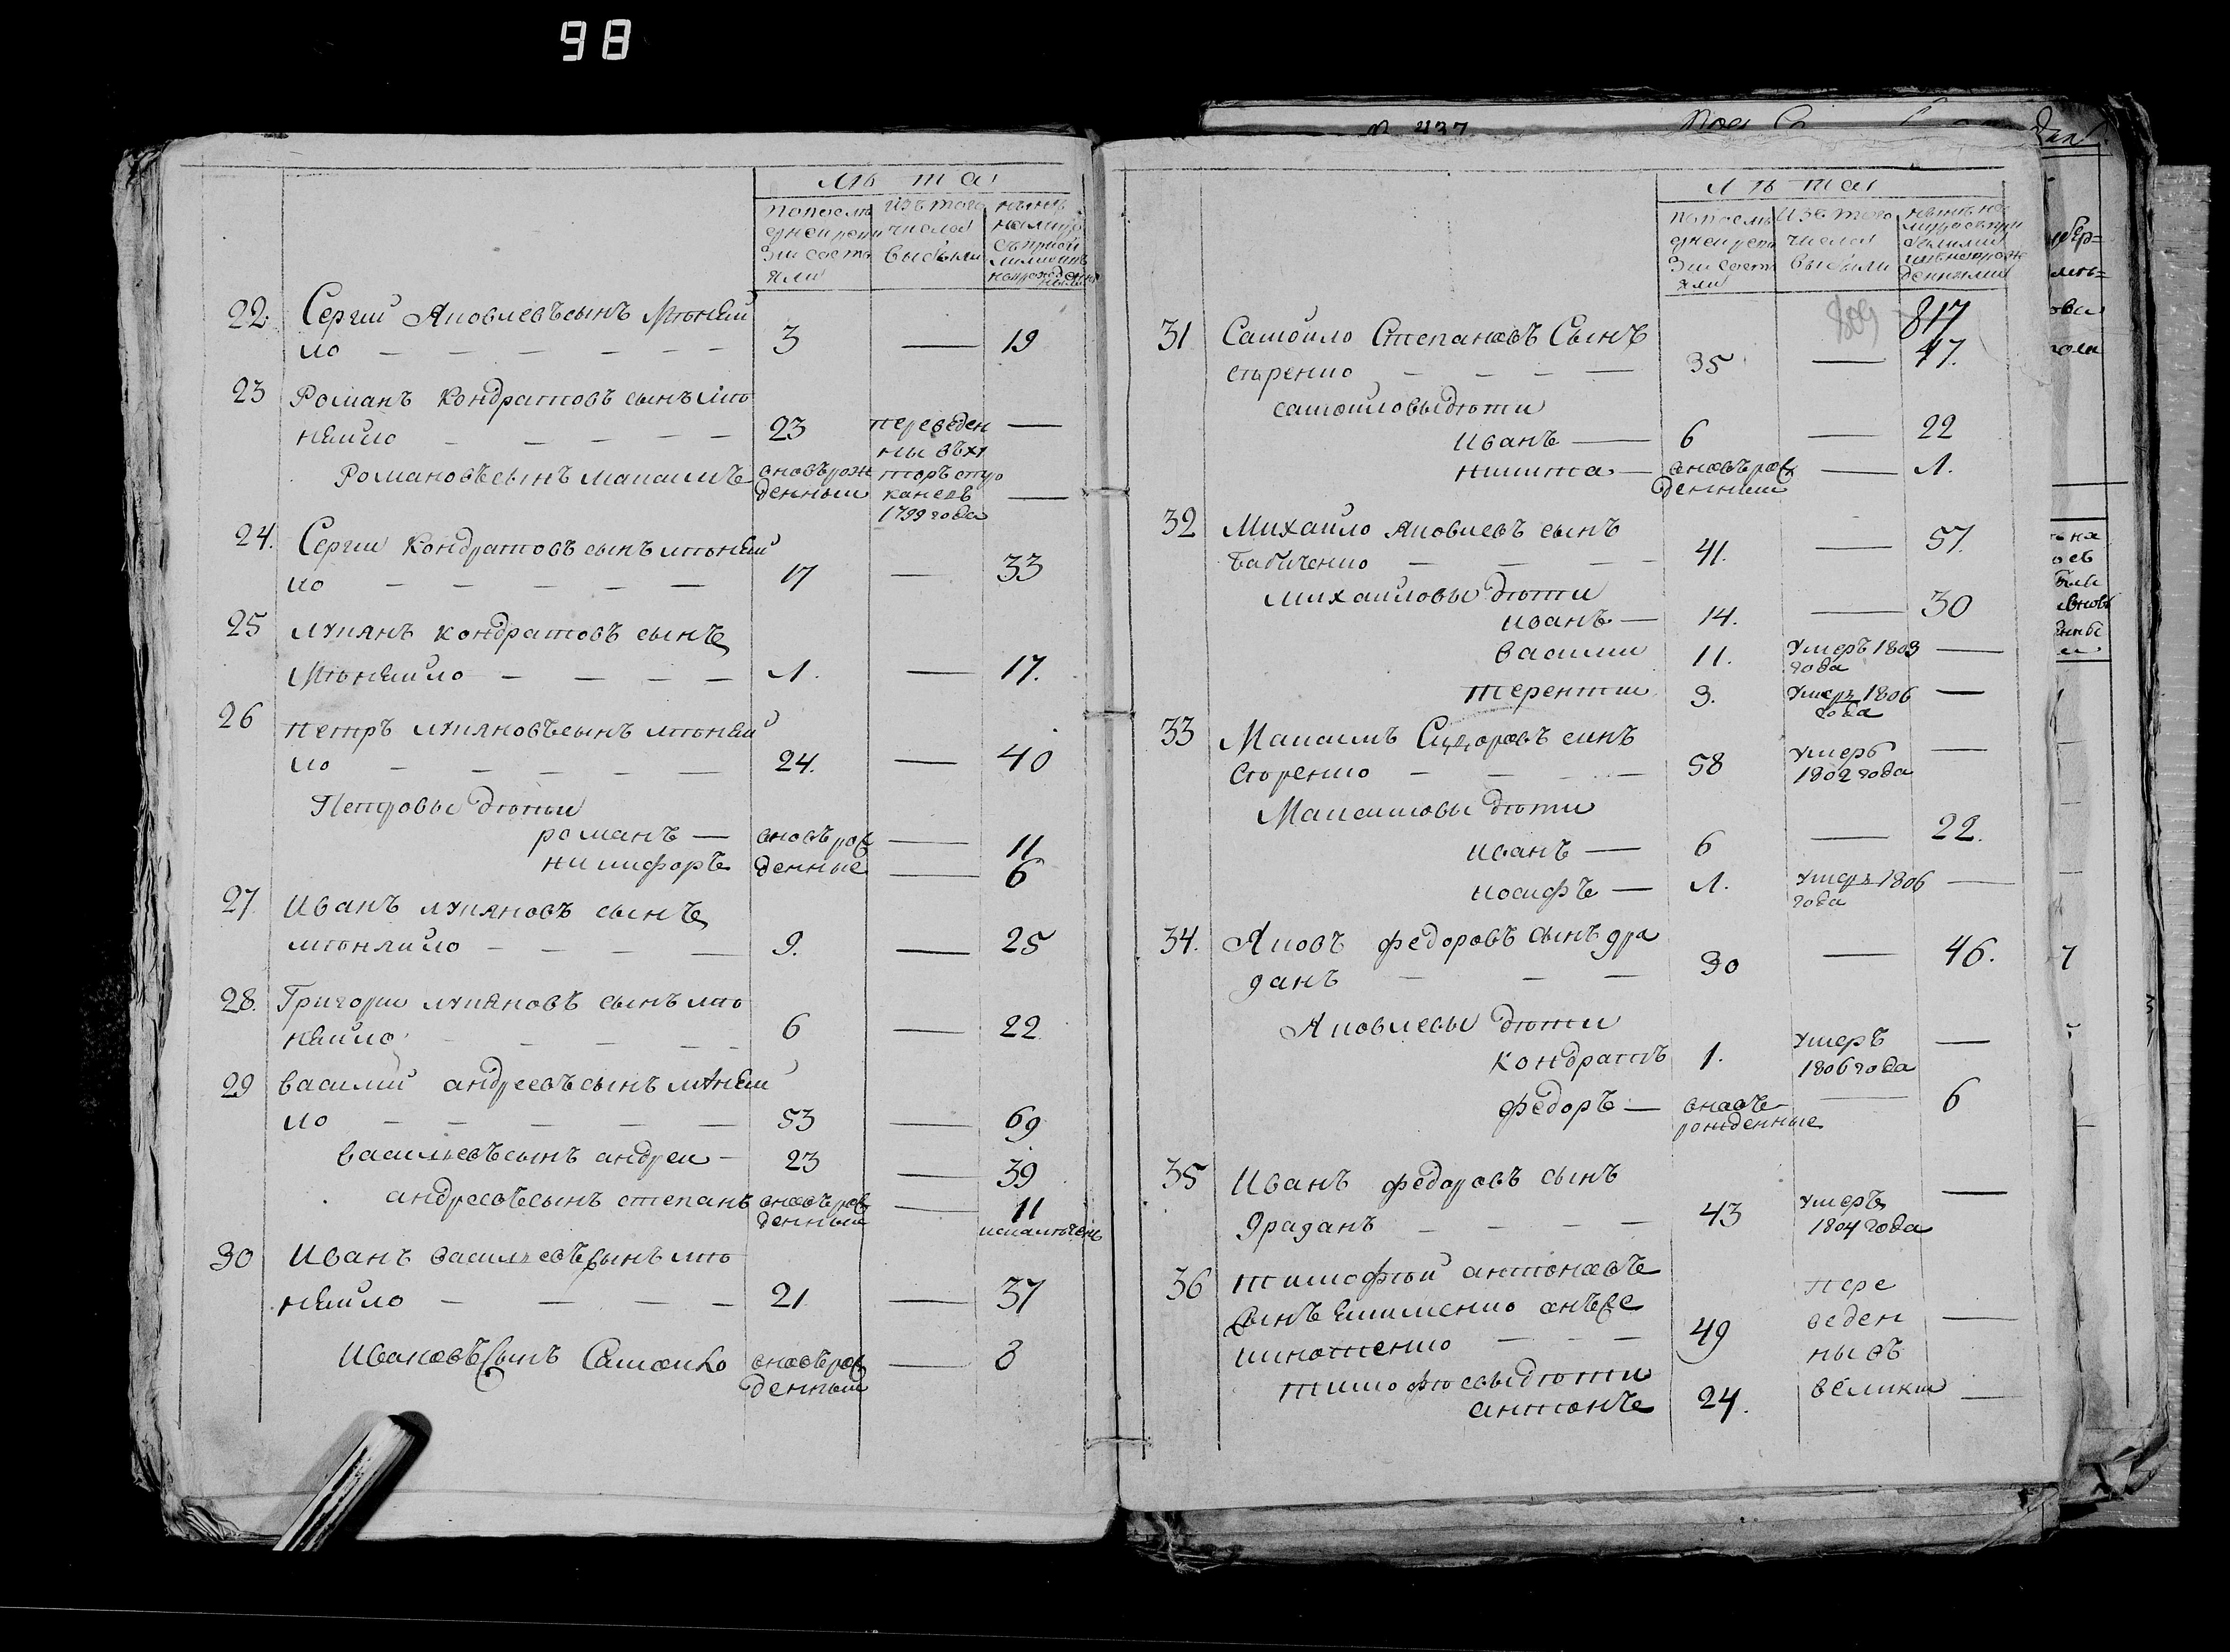 98
лѣта
попослѣ
дней реви
зіи состо
яли
изътого
числа
выбыли
нынѣ
налицо
22. Сергий Яковлевъ сынъ Мѣняй
ло — — — — — 3 — 19
23 Романъ Кондратовъ сынъ мѣ
няйло — — — — 23 переведен —
ны въ ху
Романовъ сынъ максимъ вновьрож торъ
денный —
1799 года
24. Сергии Кондратовъ сынъ мѣняй
ло — — — — — 17 — 33
25 лукянъ кондратовъ сынъ
Мѣняйло — — — — 1. — 17.
26 петръ лукяновъ сынъ мѣняй
ло — — — — — 24. — 40
Петровы дѣти
романъ — вновърож — 11
никифоръ денные — 6
27 Иванъ лукяновъ сынъ
мѣняйло — — — — 9. — 25
28. Григори лукяновъ сынъ мѣ
няйло — — — — 6 — 22
29 василий андреевъ сынъ мѣняй
ло — — — — — 53 — 69
васильевъ сынъ андреи — 23 — 39
андреевъ сынъ степанъ вновърож — 11
денный
30 Иванъ васильевъ сынъ мѣ
няйло — — — — 21 — 37
Ивановъ сынъ Самойло вновърож — 8
денный
N 437
лѣта
попослѣ
дней реви
зіи состо
яли
изътого
числа
выбыли
809 817
31 Самойло Степановъ Сынъ
47.
сѣренко — — — — 35 —
самойловы дѣти
иванъ — 6 — 22
никита — вновърож — 1.
денный
32 Михайло Яковлевъ сынъ
бабиченко — — — — 41. — 57.
михайловы дѣти
иванъ — 14. — 30
васили 11. умеръ 1803 —
года
терентии 9. умеръ 1806 —
года
33 Максимъ Сидоровъ синъ
Сѣренко — — — — 58 умеръ —
1802 года
Максимовы дѣти
иванъ — 6 — 22.
иосифъ — 1. умеръ 1806 —
года
34. Яковъ федоровъ сынъ дра
ганъ — — — 30 — 46.
Яковлевы дѣти
кондратъ 1. умеръ —
1806 года
федоръ — вновъ — 6
рожденные
35 Иванъ федоровъ сынъ
драганъ — — — — 43 умеръ —
1804 года
36 тимофѣй антоновъ
сынъ онъже
— — — 49 пере
веден —
ны въ
тимофѣевы дѣти
антонъ 24. велики —